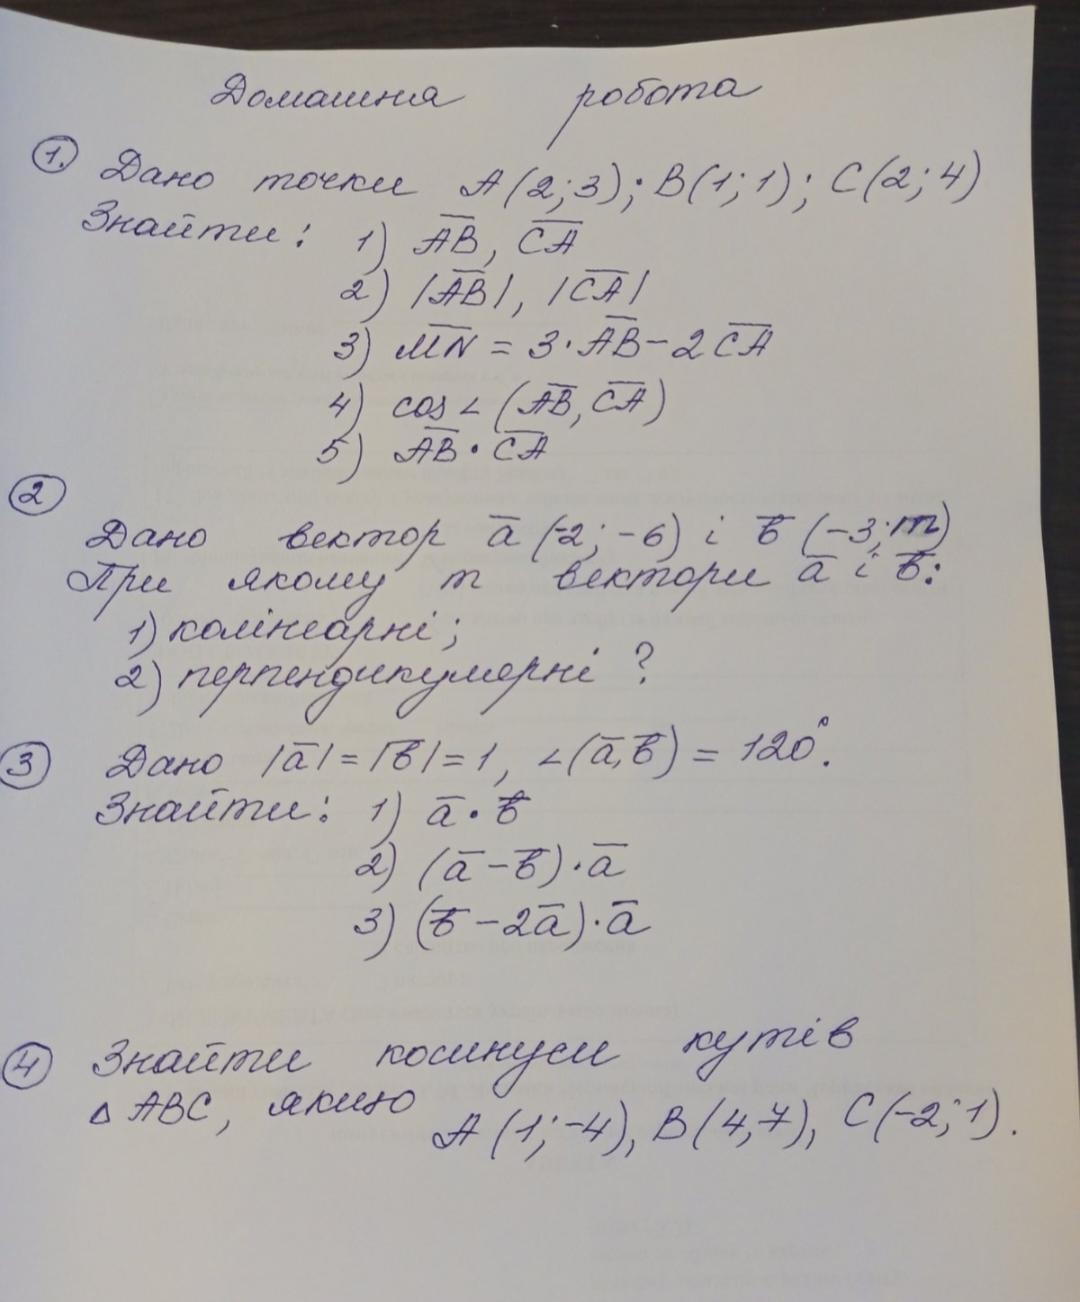 Домашня робота
1. Дано точки A(2;3); B(1;1); C(2;4)
Знайти: 1) A̅B̅, C̅A̅
2) |A̅B̅|, |C̅A̅|
3) M̅N̅ = 3·A̅B̅ - 2C̅A̅
4) cos∠(A̅B̅, C̅A̅)
5) A̅B̅ · C̅A̅
2
Дано вектор a̅(-2; -6) і b̅(-3; m)
При якому m вектори a̅ і b̅:
1) колінеарні;
2) перпендикулярні ?
3 Дано |a̅| = |b̅| = 1, ∠(a̅, b̅) = 120°.
Знайти: 1) a̅ · b̅
2) (a̅ - b̅) · a̅
3) (b̅ - 2a̅) · a̅
4 Знайти косинуси кутів
△ABC, якщо A(1; -4), B(4,7), C(-2; 1).